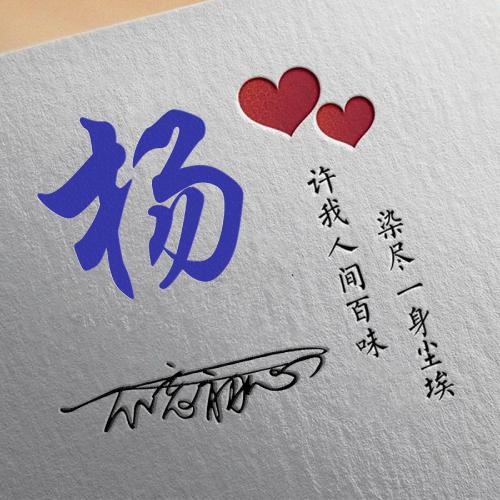 杨
许我人间百味
染尽一身尘埃